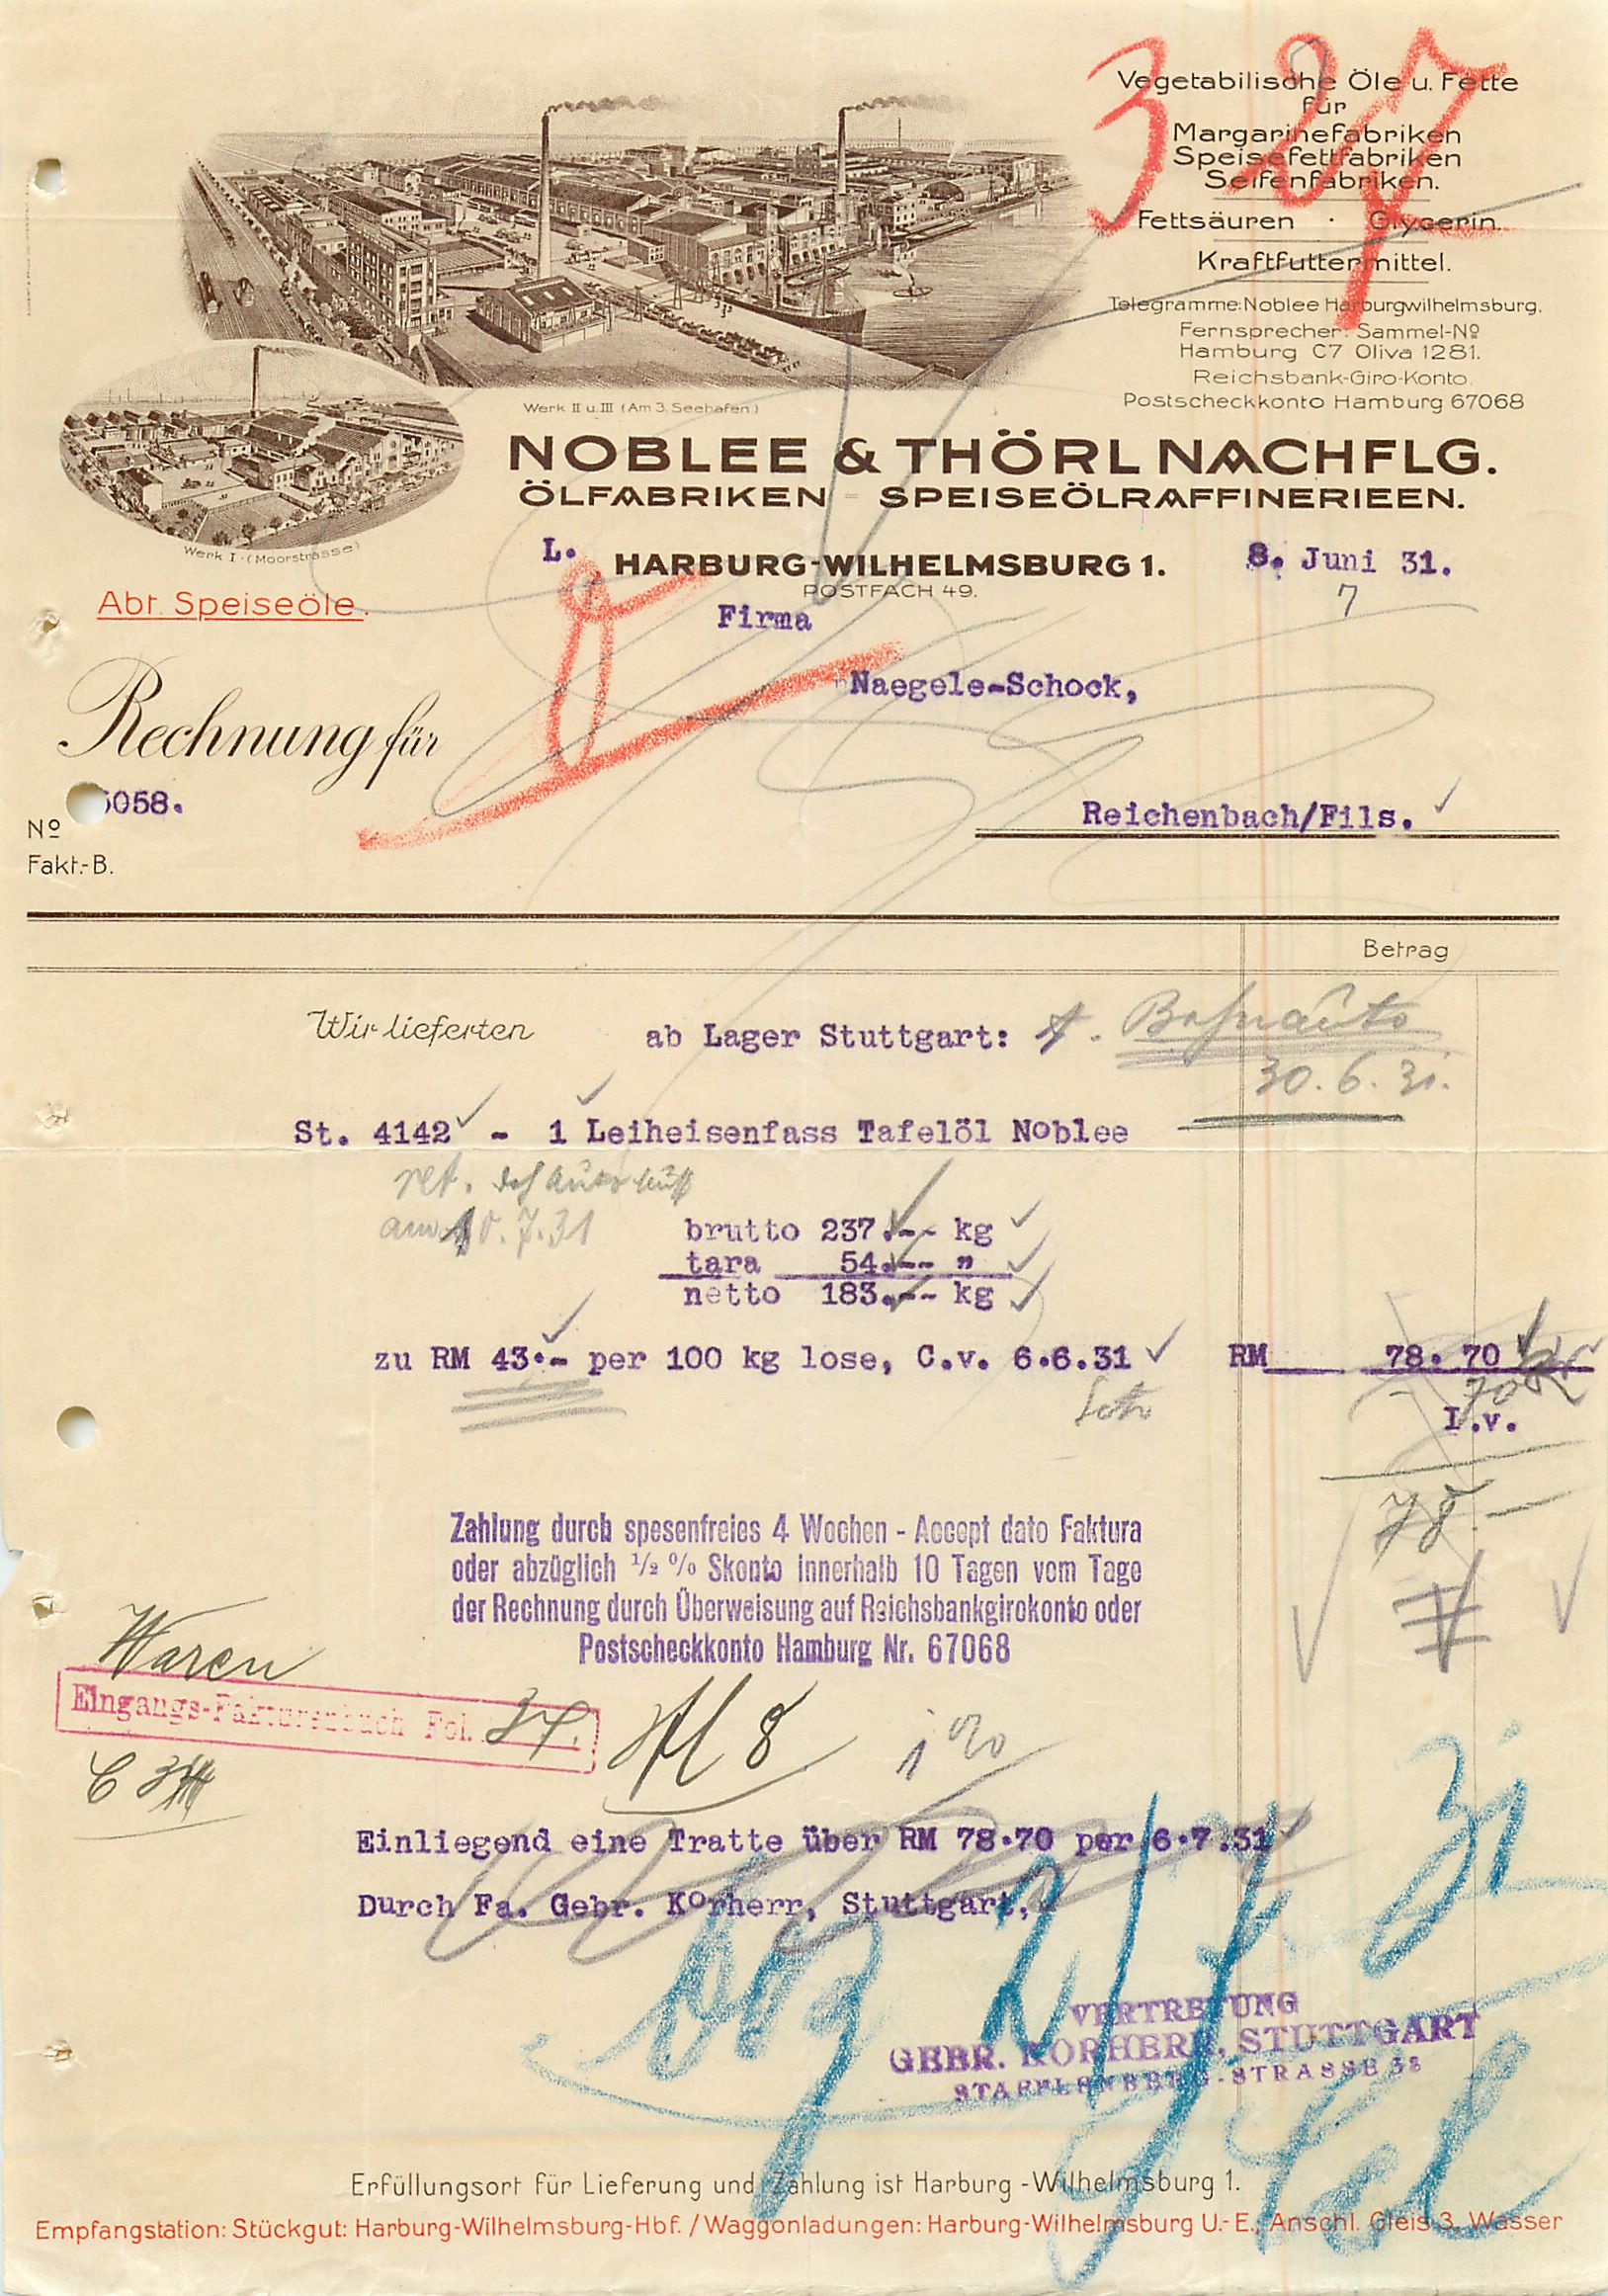 Vegetabilische Öle u. Fette
für
Margarinefabriken
Speisefettfabriken
Seifenfabriken.
Fettsäuren · Glycerin.
Kraftfuttermittel.
Telegramme: Noblee Harburgwilhelmsburg.
Fernsprecher: Sammel-Nº
Hamburg C7 Oliva 1281.
Reichsbank-Giro-Konto.
Postscheckkonto Hamburg 67068
327
Werk II u. III (Am 3. Seehafen)
NOBLEE & THÖRL NACHFLG.
ÖLFABRIKEN - SPEISEÖLRAFFINERIEEN.
Werk I · (Moorstrasse)
L. HARBURG-WILHELMSBURG 1. 8. Juni 31.
POSTFACH 49.
7
Abt. Speiseöle.
Firma
Naegele-Schock,
Rechnung für
Reichenbach/Fils.
Nº 5058.
Fakt.-B.
Betrag
Wir lieferten ab Lager Stuttgart:
30.6.31.
St. 4142 - 1 Leiheisenfass Tafelöl Noblee
ret.
am 10.7.31
brutto 237.-- kg
tara 54.-- "
netto 183.-- kg
zu RM 43.- per 100 kg lose, C.v. 6.6.31 RM 78.70
- 70
I.v.
78.-
Zahlung durch spesenfreies 4 Wochen - Accept dato Faktura
oder abzüglich ½ % Skonto innerhalb 10 Tagen vom Tage
der Rechnung durch Überweisung auf Reichsbankgirokonto oder
Postscheckkonto Hamburg Nr. 67068
Waren
Eingangs-Fakturenbuch Fol. 37.
Einliegend eine Tratte über RM 78.70 per 6.7.31
Durch Fa. Gebr. Korherr, Stuttgart,
VERTRETUNG
GEBR. KORHERR, STUTTGART
STAFFLENBERG-STRASSE 38
Erfüllungsort für Lieferung und Zahlung ist Harburg-Wilhelmsburg 1.
Empfangstation: Stückgut: Harburg-Wilhelmsburg-Hbf. / Waggonladungen: Harburg-Wilhelmsburg U.-E., Anschl. Gleis 3, Wasser